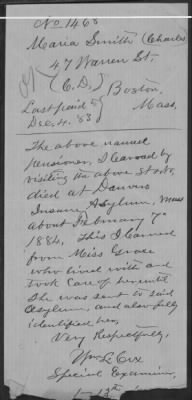 No. 1465
Maria Smith (Charles
47 Warren St.
(C. D.) Boston
Mass.
Last paid
Dec. 4. 83
The above named
pensioner, I learned by
visiting the above st. & no,
died at Danvers
Insane Asylum, Mass
about February 7th
1884, this I learned
from Miss Grace
who lived with and
took care of her until
she was sent to said
Asylum, and also fully
identified her,
Very Respectfully,
Wm L. Cox
Special Examiner,